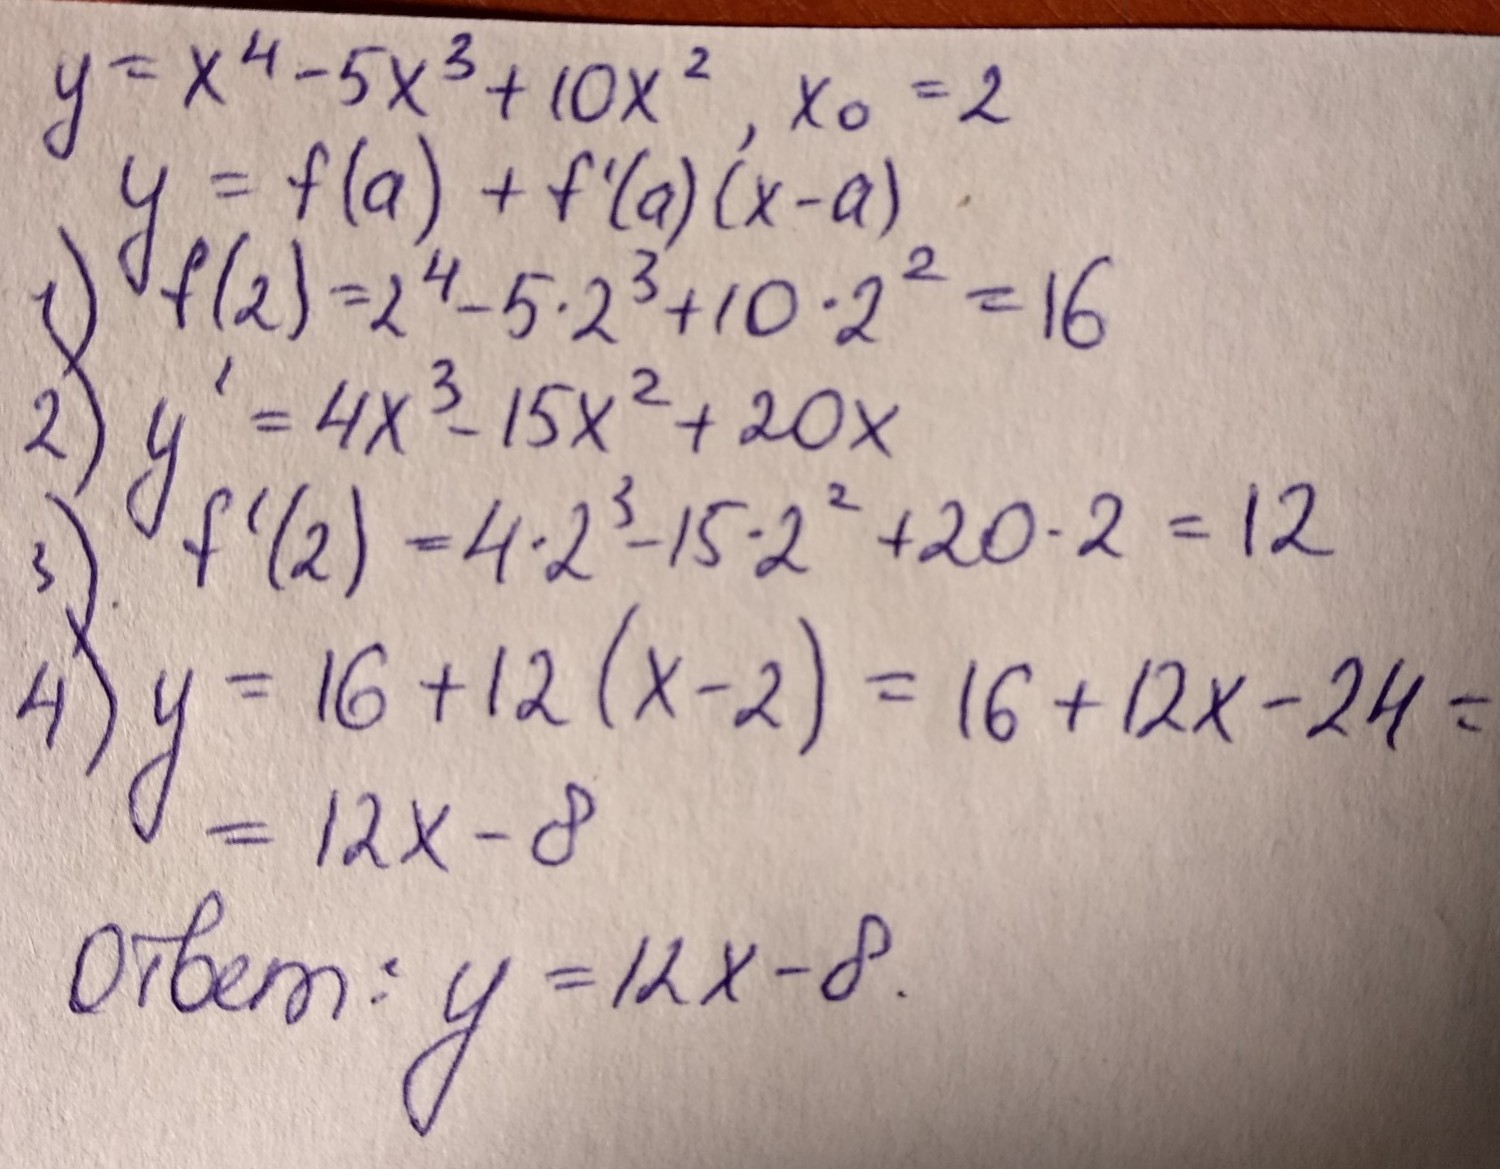 y = x⁴ - 5x³ + 10x², x₀ = 2
y = f(a) + f'(a)(x-a)
1) f(2) = 2⁴ - 5·2³ + 10·2² = 16
2) y' = 4x³ - 15x² + 20x
3) f'(2) = 4·2³ - 15·2² + 20·2 = 12
4) y = 16 + 12(x-2) = 16 + 12x - 24 =
= 12x - 8
Ответ: y = 12x - 8.